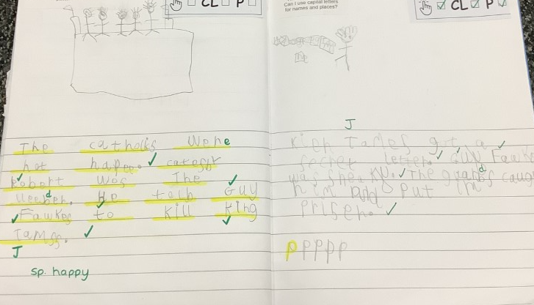 CL P
Can I use capital letters
for names and places?
CL P
The catholis were
not happe. catesby
Robert was The
leeder. He told Guy
Fawkes to kill king
James.
J
sp happy
J
King James got a
secret letter. Guy Fawkes
was The gaards caught
him and put in
prisen.
p p p p p